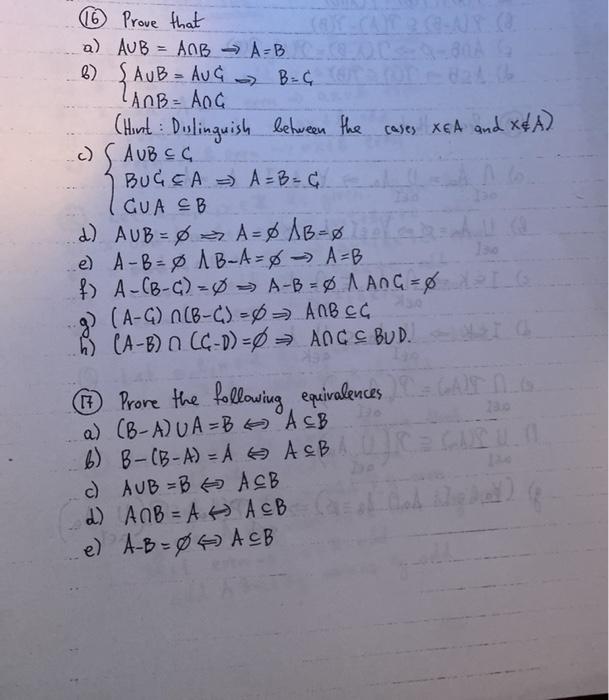 (16) Prove that
a) A∪B = A∩B ⇒ A=B
b) { A∪B = A∪C ⇒ B=C
A∩B = A∩C
(Hint : Distinguish between the cases x∈A and x∉A)
c) { A∪B ⊆ C
B∪C ⊆ A ⇒ A=B=C
C∪A ⊆ B
d) A∪B = ∅ ⇒ A=∅ ∧ B=∅
e) A-B=∅ ∧ B-A=∅ ⇒ A=B
f) A-(B-C)=∅ ⇒ A-B=∅ ∧ A∩C=∅
g) (A-C)∩(B-C)=∅ ⇒ A∩B⊆C
h) (A-B)∩(C-D)=∅ ⇒ A∩C⊆B∪D.
(17) Prove the following equivalences
a) (B-A)∪A=B ⇔ A⊆B
b) B-(B-A)=A ⇔ A⊆B
c) A∪B=B ⇔ A⊆B
d) A∩B=A ⇔ A⊆B
e) A-B=∅ ⇔ A⊆B